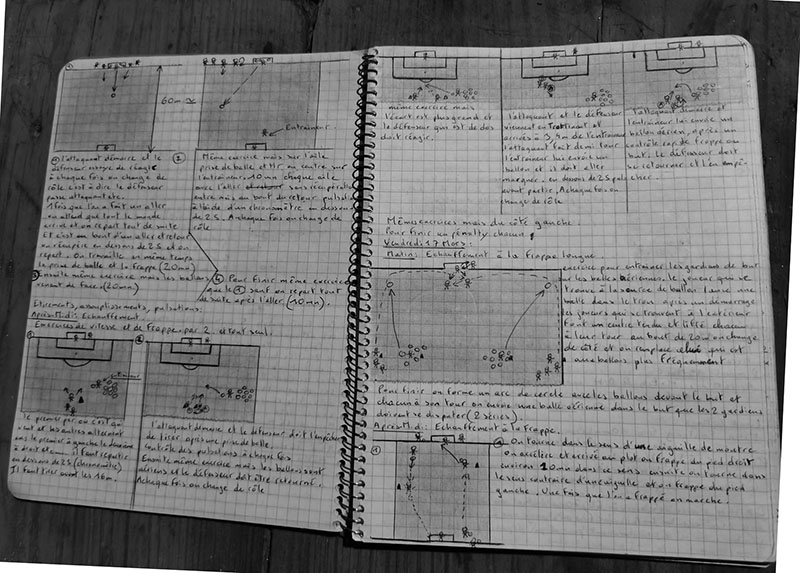 60m
Entraineur
① l'attaquant démarre et le
défenseur essaye de réagir
à chaque fois on change de
rôle c'est à dire le défenseur
passe attaquant etc.
1 fois que l'on a fait un aller
on attend que tout le monde
arrive et on repart tout de suite
Et c'est au bout d'un aller et retour
on récupère en dessous de 25 et on
repart. On travaille en même temps
la prise de balle et la frappe (20mn)
③ Ensuite même exercice mais les ballons
venant de face. (20mn)
②
Même exercice mais sur l'aile
prise de balle et tir au centre sur
l'entraineur 10mn chaque aile
avec l'aller sans récupération
entre mais au bout du retour pulsation
à l'aide d'un chronomètre en dessous
de 25. A chaque fois on change de
rôle
④ Pour finir même exercice
que le ① sauf on repart tout
de suite après l'aller. (10mn).
Etirements, assouplissements, pulsations.
Après Midi: Echauffement.
Exercices de vitesse et de frappe, par 2. et tout seul.
①
②
le premier par où c'est qu'
il faut repartir
en dessous de 25 (chronomètre)
Il faut tirer avant les 16m.
l'attaquant démarre et le défenseur doit l'empêcher
de tirer après une prise de balle.
Contrôle des pulsations à chaque fois
Ensuite même exercice mais les ballons sont
aériens et le défenseur doit être retourné.
A chaque fois on change de rôle
même exercice mais
l'écart est plus grand et
le défenseur qui est de dos
doit réagir.
l'attaquant et le défenseur
viennent en trottinant et
arrivés à 3,4m de l'entraineur
l'attaquant fait demi tour
l'entraineur lui envoie un
ballon et il doit elle
marquée. en dessous de 25 puls
avant partir. A chaque fois on
change de rôle
l'attaquant démarre et
l'entraineur lui envoie un
ballon aérien, après un
contrôle cap de frappe au
but. le défenseur doit
se retourner et l'en empê-
cher.
Mêmes exercices mais du côté gauche.
Pour finir un pénalty chacun!
Vendredi 17 Mars:
Matin: Echauffement à la frappe longue
exercice pour entrainer les gardiens de but
sur les balles aériennes. le joueur qui se
trouve à la source de ballon lance une
balle dans le trou, après un démarrage
les joueurs qui se trouvent à l'extérieur
font un centre tendu et lifté chacun
à leur tour au bout de 20m on change
de côté et on remplace celui qui est
aux ballons plus fréquemment
Pour finir on forme un arc de cercle avec les ballons devant le but et
chacun à son tour on envoie une balle aérienne dans le but que les 2 gardiens
doivent se disputer (2 séries)
Après Midi: Echauffement à la frappe.
①
① On tourne dans le sens d'une aiguille de montre
on accélère et arrivé au plot on frappe du pied droit
environ 10mn dans ce sens ensuite on tourne dans
le sens contraire d'une aiguille et on frappe du pied
gauche. Une fois que l'on a frappé on marche.